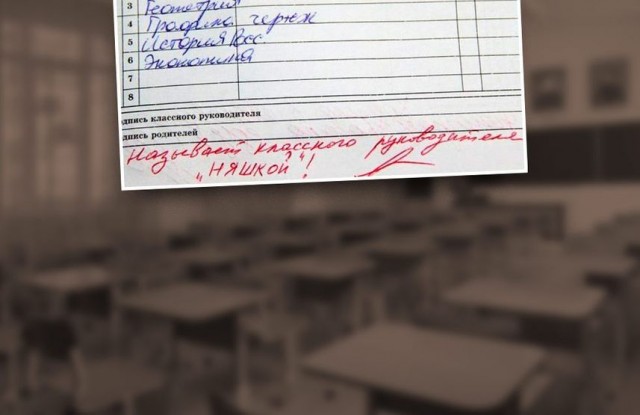 3 Геометрия
4 Графика чертж
5 История Рос
6 Экономика
7
8
дпись классного руководителя
дпись родителей
Называет классного руководителя
„НЯШКОЙ“!